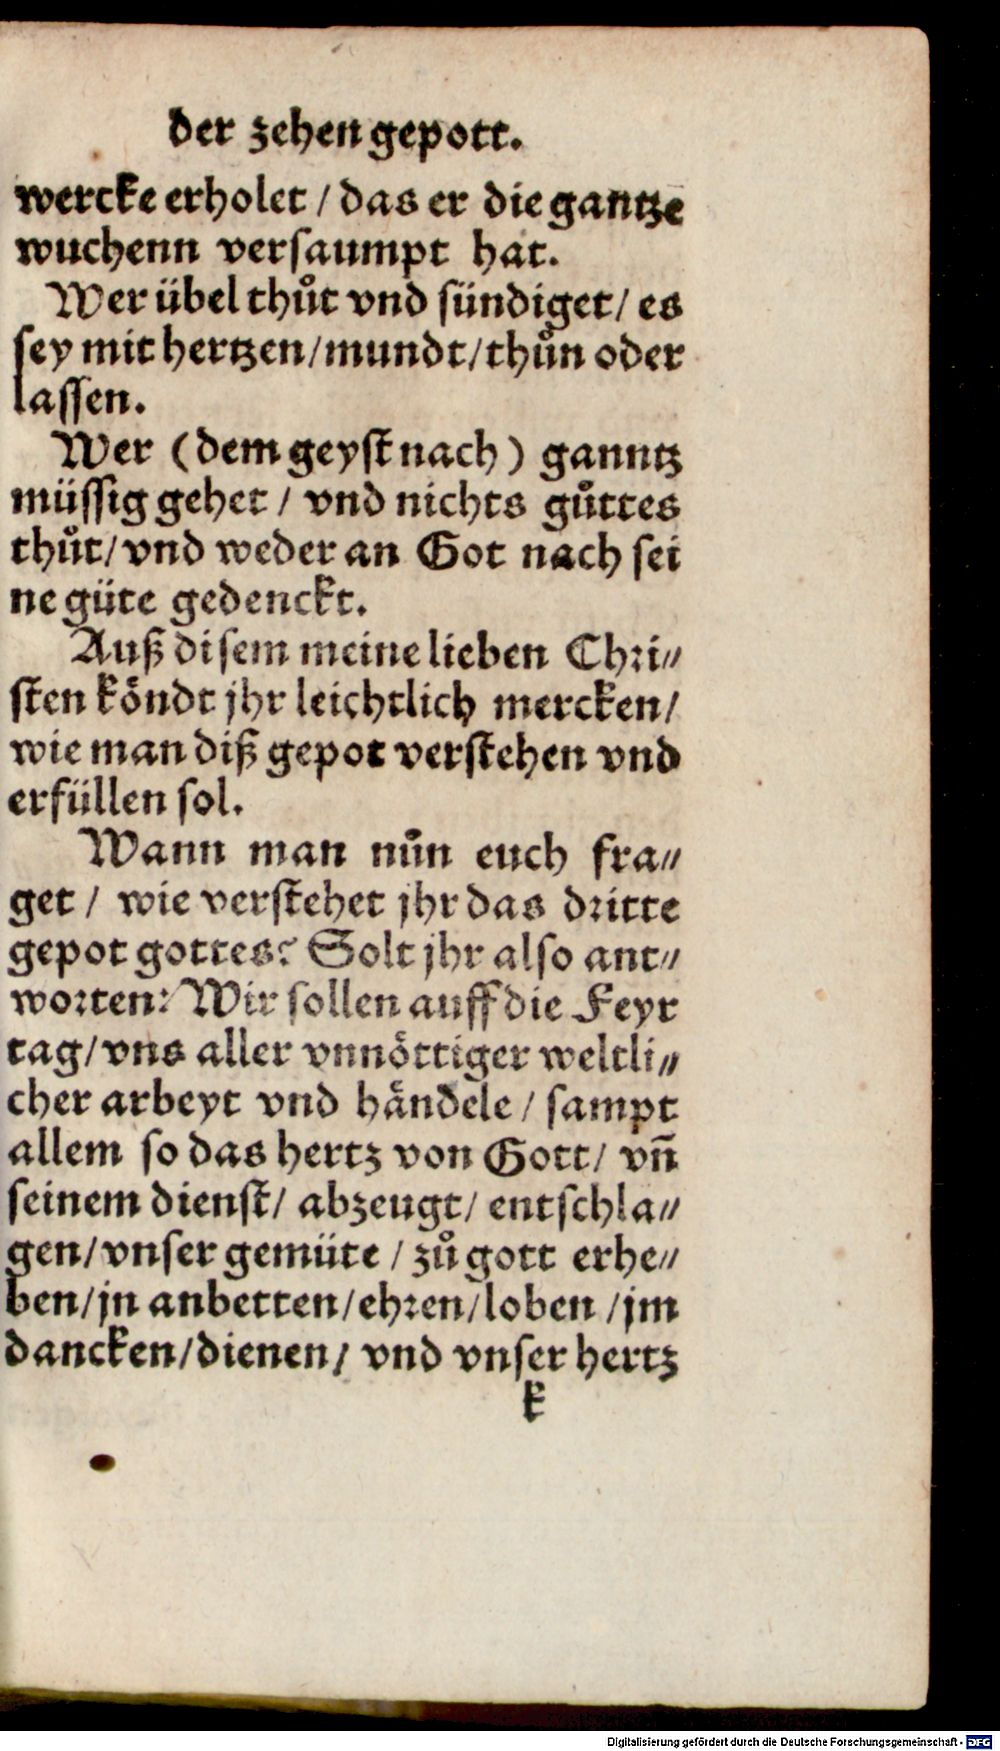 der zehen gepott.
wercke erholet / das er die gantze
wuchenn versaumpt hat.
Wer übel thůt vnd sündiget / es
sey mit hertzen / mundt / thůn oder
lassen.
Wer (dem geyst nach) ganntz
müssig gehet / vnd nichts gůttes
thůt / vnd weder an Got nach sei
ne güte gedenckt.
Auß disem meine lieben Chri⸗
sten köndt jhr leichtlich mercken /
wie man diß gepot verstehen vnd
erfüllen sol.
Wann man nůn euch fra⸗
get / wie verstehet jhr das dritte
gepot gottes? Solt jhr also ant⸗
worten: Wir sollen auff die Feyr
tag / vns aller vnnöttiger weltli⸗
cher arbeyt vnd händele / sampt
allem so das hertz von Gott / vñ
seinem dienst / abzeugt / entschla⸗
gen / vnser gemüte / zů gott erhe⸗
ben / jn anbetten / ehren / loben / jm
dancken / dienen / vnd vnser hertz
k
Digitalisierung gefördert durch die Deutsche Forschungsgemeinschaft - DFG